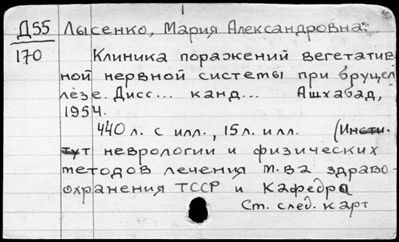 Д55 Лысенко, Мария Александровна.
170 Клиника поражений вегетатив
ной нервной системы при бруцел
лезе. Дисс... канд... Ашхабад,
1954.
440 л. с илл., 15 л. илл. (Инсти
тут неврологии и физических
методов лечения М-ва здраво-
охранения ТССР и Кафедра
См. след. карт